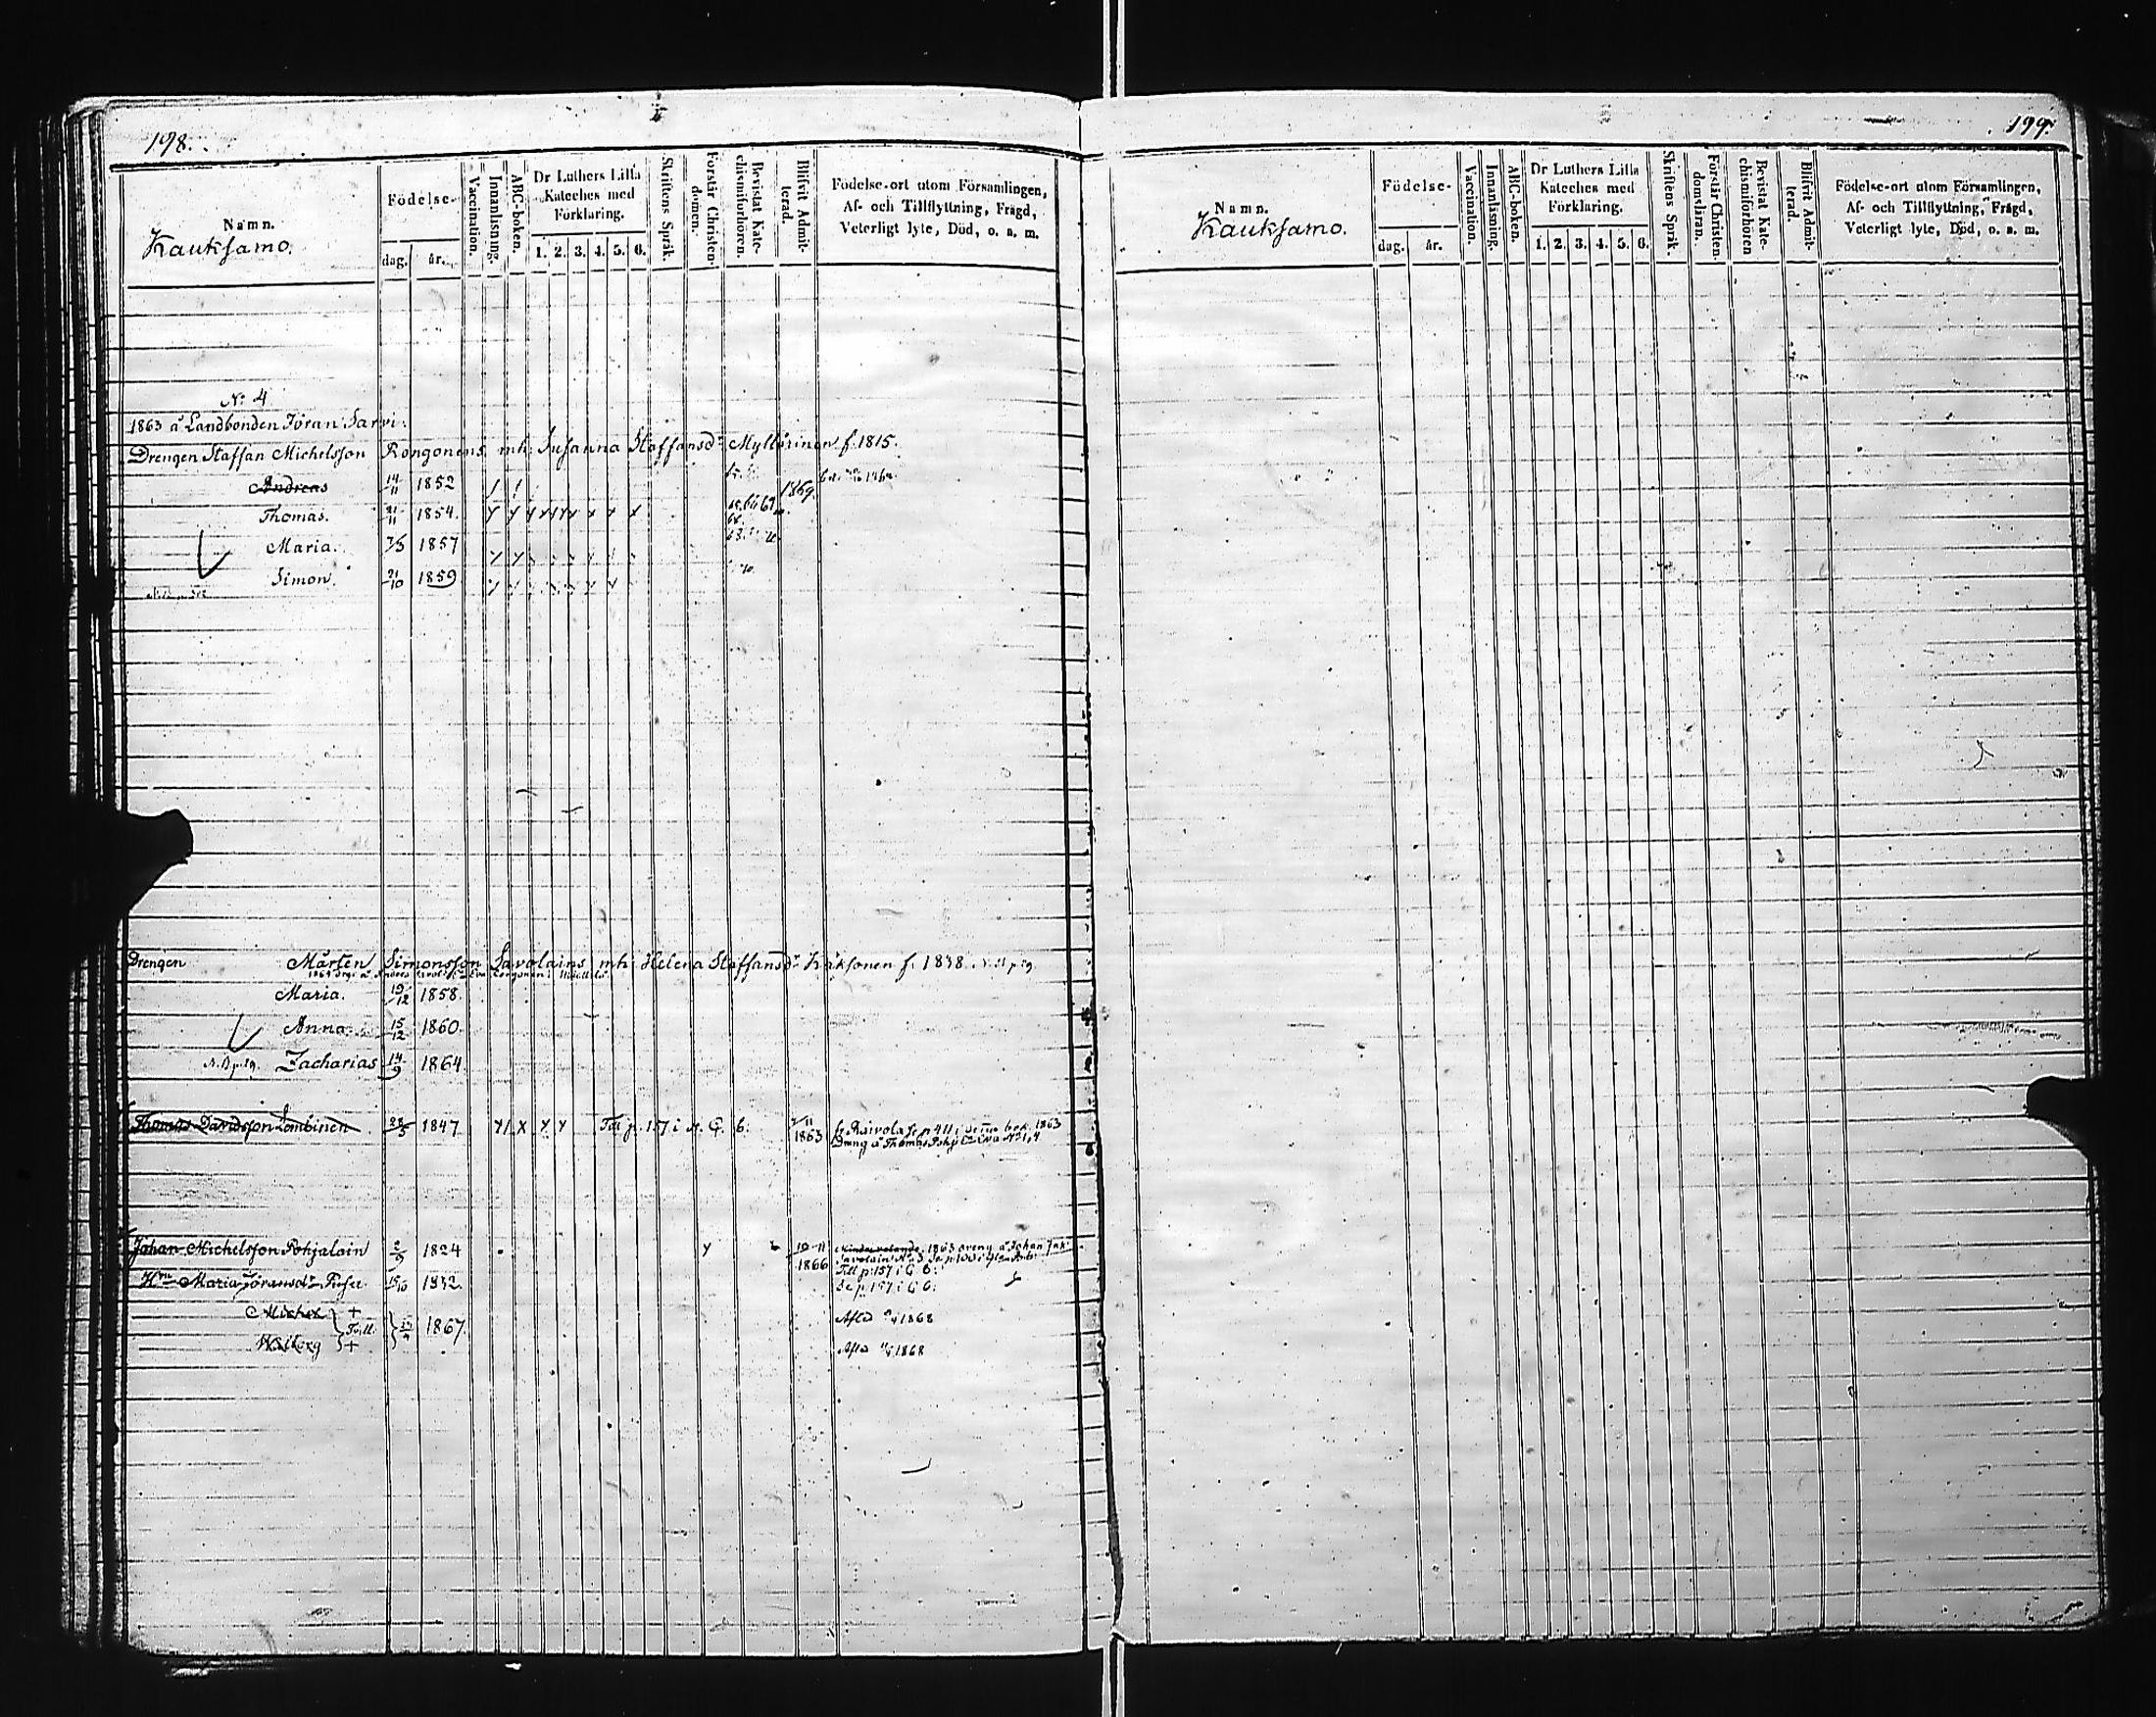 198.
Namn.
Kauksamo.
Födelse-
dag. år.
Vaccination.
Innanläsning.
ABC-boken.
Dr Luthers Lilla
Kateches med
Förklaring.
1. 2. 3. 4. 5. 6.
Skriftens Språk.
Förstår Christen-
domen.
Bevistat Kate-
chismiförhören.
Blifvit Admit-
terad.
Födelse-ort utom Församlingen,
Af- och Tillflyttning, Frägd,
Veterligt lyte, Död, o. s. m.
No 4
1863 å Landbonden Jöran Sarvi.
Drengen Staffan Michelsson Rongonens mh: Susanna Staffansdr f. 1815.
Andreas 14/11 1852
Thomas. 21/11 1854. 1869.
Maria. 7/5 1857
Simon. 21/10 1859
Drengen Mårten Simonsson Savolains mh: Helena Staffansdr Käksonen f. 1838.
Maria. 19/12 1858.
Anna. 15/12 1860.
Zacharias 14/9 1864
Thomas Davidsson Lembinen 28/5 1847 Till p. 157 i 1863 fr. Raivola se p 411 i denna bok. 1863
Johan Michelsson Pohjalain 1824 1866 1863 dreng å Johan
Till p. 157 i G. B.
Hu Maria Jöransdr 1832. Se p. 157 i G. B.
Michel +
Tvill. 1867. Afled 1868
Walborg + Afled 1868
199.
Namn.
Kauksamo.
Födelse-
dag. år.
Vaccination.
Innanläsning.
ABC-boken.
Dr Luthers Lilla
Kateches med
Förklaring.
1. 2. 3. 4. 5. 6.
Skriftens Språk.
Förstår Christen-
domsläran.
Bevistat Kate-
chismiförhören
Blifvit Admit-
terad.
Födelse-ort utom Församlingen,
Af- och Tillflyttning, Frägd,
Veterligt lyte, Död, o. s. m.